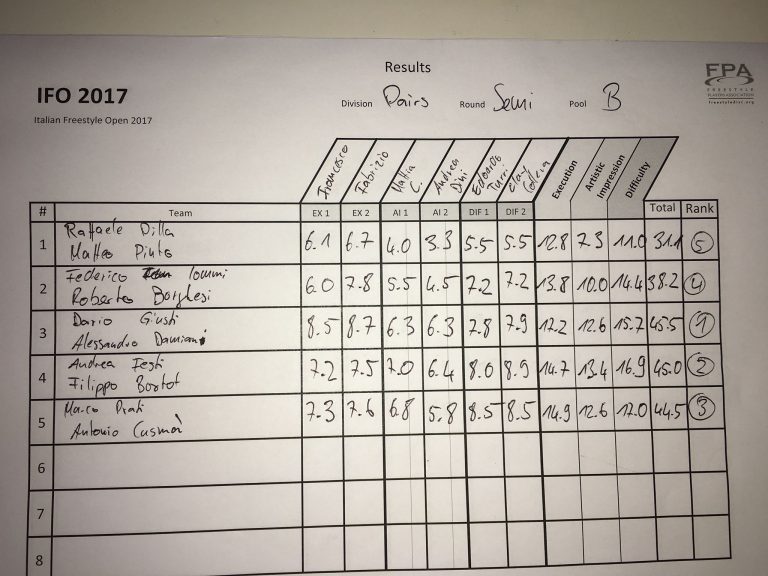 Results
IFO 2017
Italian Freestyle Open 2017
Division Pairs Round Semi Pool B
FPA
FREESTYLE
PLAYERS ASSOCIATION
freestyledisc.org
Francesco Fabrizio Mattia C. Andrea Dini Edoardo Turri Clay Collera Execution Artistic Impression Difficulty
# Team EX 1 EX 2 AI 1 AI 2 DIF 1 DIF 2 Total Rank
1 Raffaele Dilla
Matteo Pinto 6.1 6.7 4.0 3.3 5.5 5.5 12.8 7.3 11.0 31.1 5
2 Federico Iommi
Roberto Borghesi 6.0 7.8 5.5 4.5 7.2 7.2 13.8 10.0 14.4 38.2 4
3 Dario Giusti
Alessandro Damiani 8.5 8.7 6.3 6.3 7.8 7.9 17.2 12.6 15.7 45.5 1
4 Andrea Festi
Filippo Bortot 7.2 7.5 7.0 6.4 8.0 8.9 14.7 13.4 16.9 45.0 2
5 Marco Prati
Antonio Cusmà 7.3 7.6 6.8 5.8 8.5 8.5 14.9 12.6 17.0 44.5 3
6
7
8